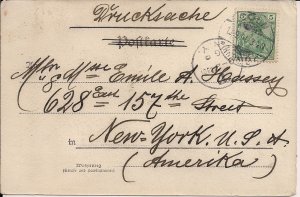 Drucksache
Postkarte
Mr & Mrs Emile A. Hassey
628 East 157th Street
in New-York. U.S.A
(Amerika)
Wohnung